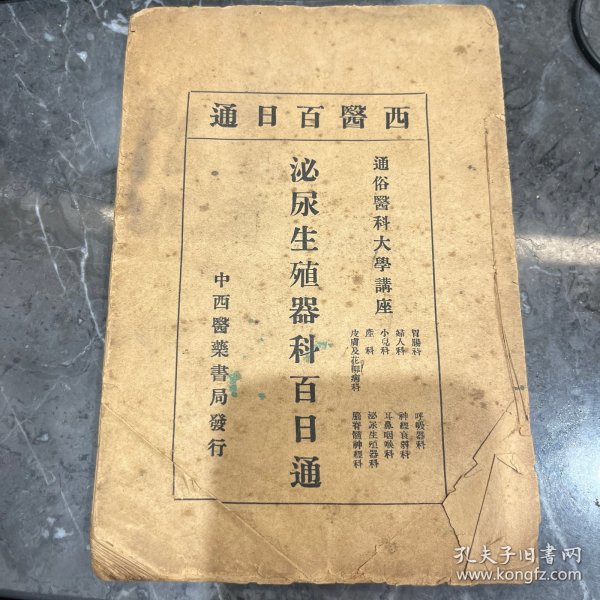 西醫百日通
通俗醫科大學講座
胃腸科
婦人科
小兒科
產科
皮膚及花柳病科
呼吸器科
神經衰弱科
耳鼻咽喉科
泌尿生殖器科
腦脊髓神經科
泌尿生殖器科百日通
中西醫藥書局發行
孔夫子旧书网
www.kongfz.com